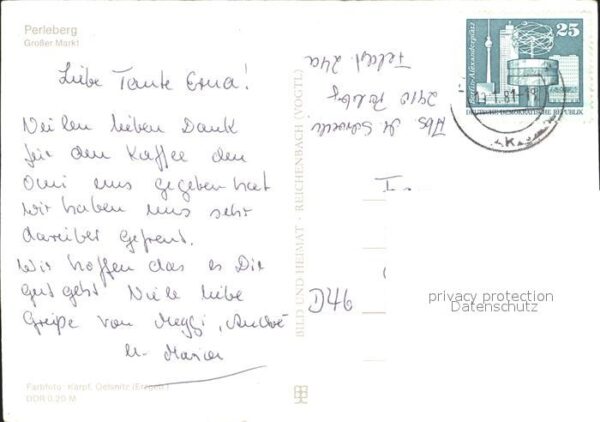 Perleberg
Großer Markt
Liebe Tante Erna!
Vielen lieben Dank
für den Kaffee den
Omi uns gegeben hat
wir haben uns sehr
darüber gefreut.
Wir hoffen das es Dir
gut geht Viele liebe
Grüße von Meggi, André
u. Maria
Farbfoto: Karpf, Oelsnitz (Erzgeb.)
DDR 0,20 M
BILD UND HEIMAT · REICHENBACH (VOGTL)
Abs. M.
2910 Perleberg
24a
25
Berlin-Alexanderplatz
DEUTSCHE DEMOKRATISCHE REPUBLIK
privacy protection
Datenschutz